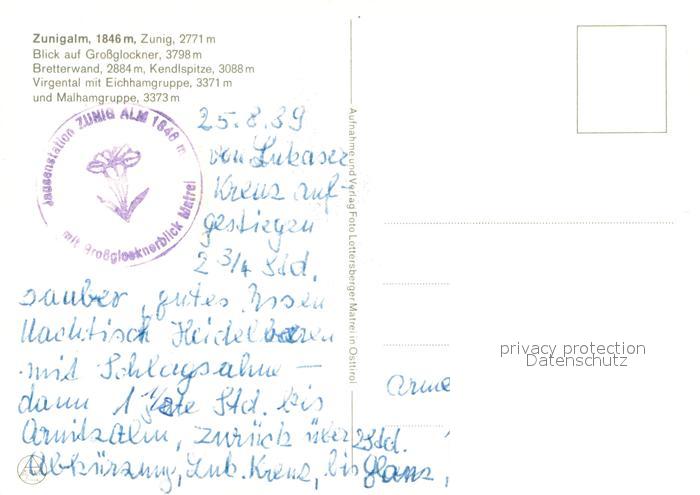 Zunigalm, 1846 m, Zunig, 2771 m
Blick auf Großglockner, 3798 m
Bretterwand, 2884 m, Kendlspitze, 3088 m
Virgental mit Eichhamgruppe, 3371 m
und Malhamgruppe, 3373 m
Jausenstation ZUNIG ALM 1846 m
mit Großglocknerblick Matrei
25.8.89
von Lukaser
Kreuz auf-
gestiegen
2 3/4 Std.
sauber, gutes Essen
Nachtisch Heidelbeeren
mit Schlagsahne –
dann 1 1/2 Std. bis
Arnitzalm, zurück über 2 Std.
Abkürzung, Luk. Kreuz, bis Glanz,
Aufnahme und Verlag Foto Lottersberger Matrei in Osttirol
privacy protection
Datenschutz